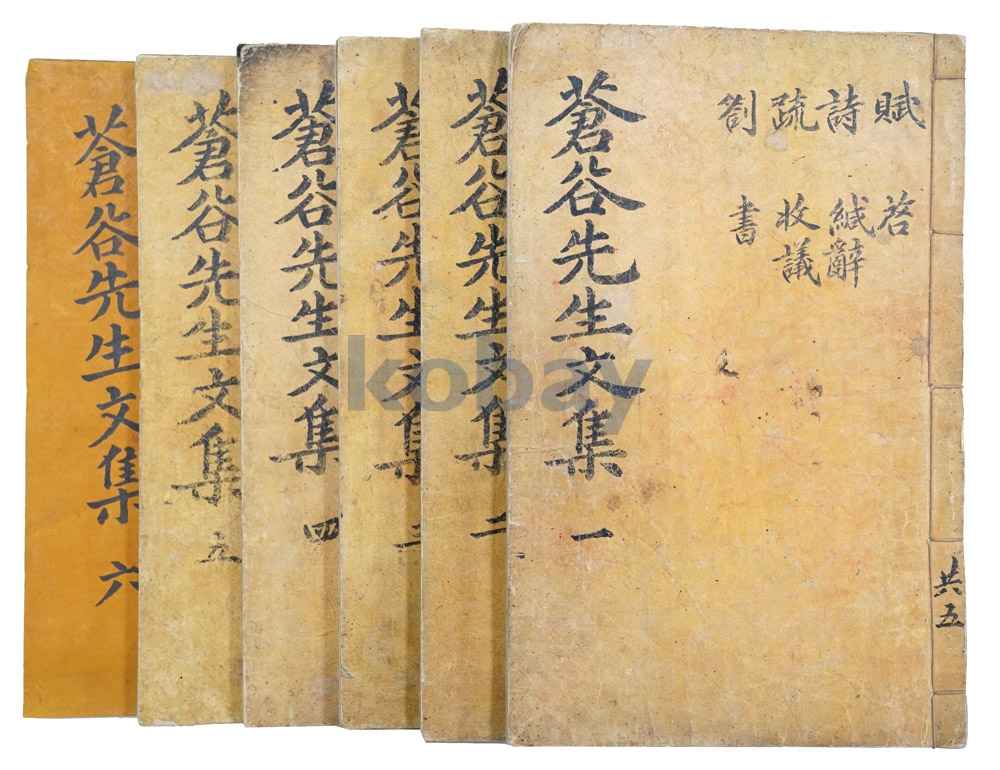 共五
賦 荅
詩 緘辭
疏 收議
劄 書
蒼谷先生文集 一
蒼谷先生文集 二
蒼谷先生文集 三
蒼谷先生文集 四
蒼谷先生文集 五
蒼谷先生文集 六
kobay